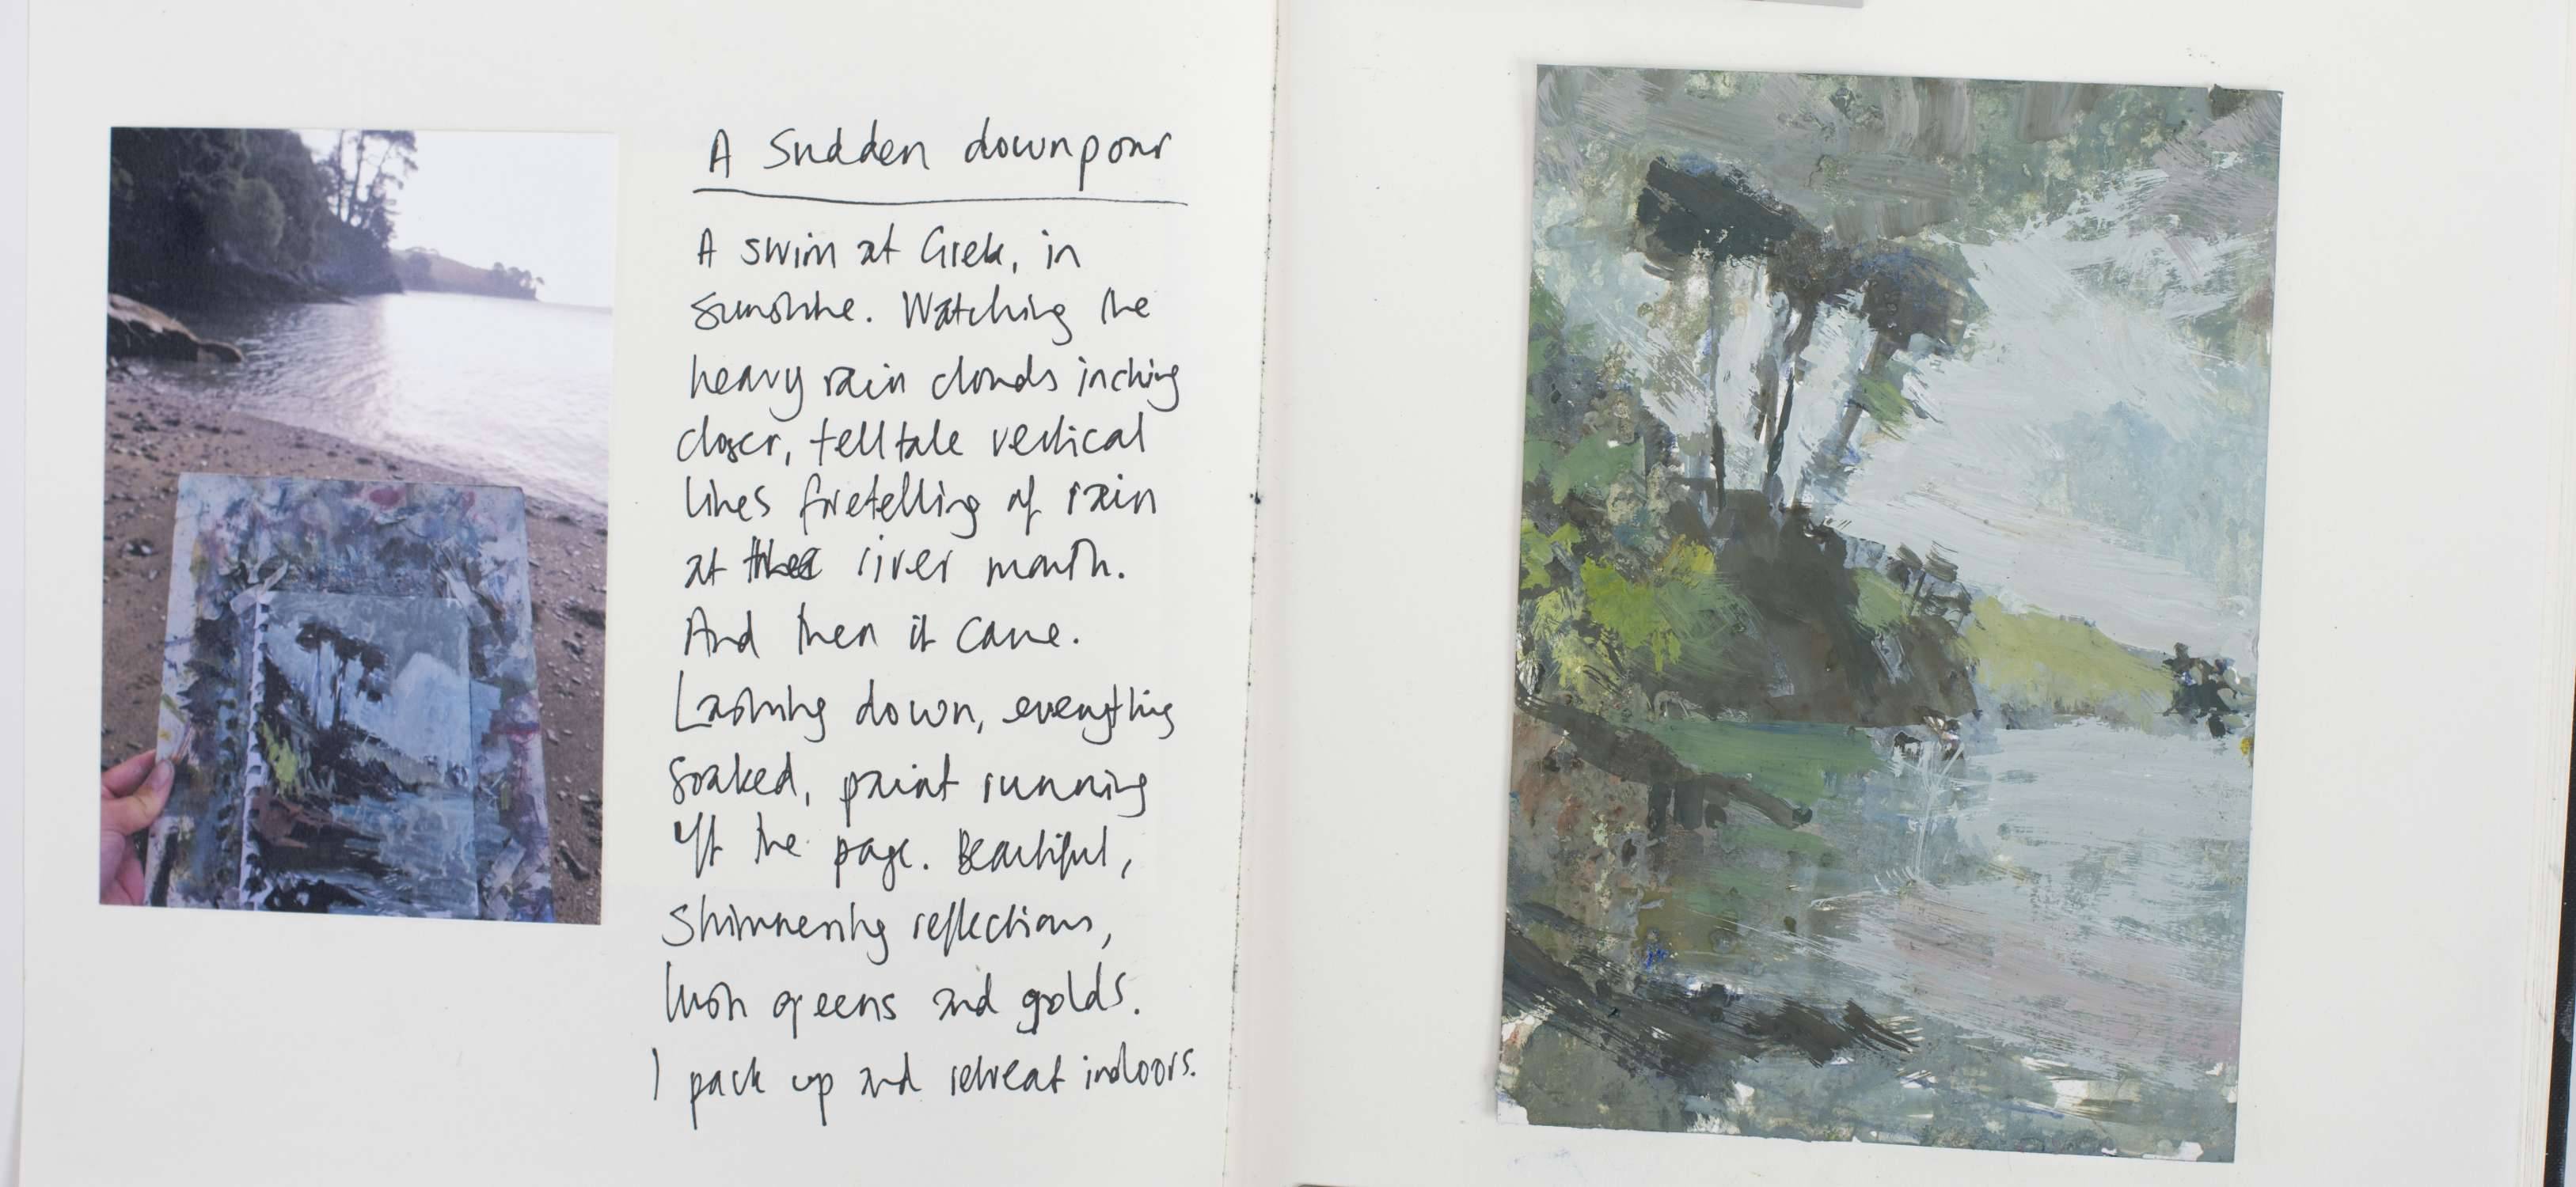 A Sudden downpour
A swim at Greb, in
sunshine. Watching the
heavy rain clouds inching
closer, telltale vertical
lines foretelling of rain
at the river mouth.
And then it came.
Lashing down, everything
soaked, paint running
off the page. Beautiful,
Shimmering reflections,
lush greens and golds.
I pack up and retreat indoors.